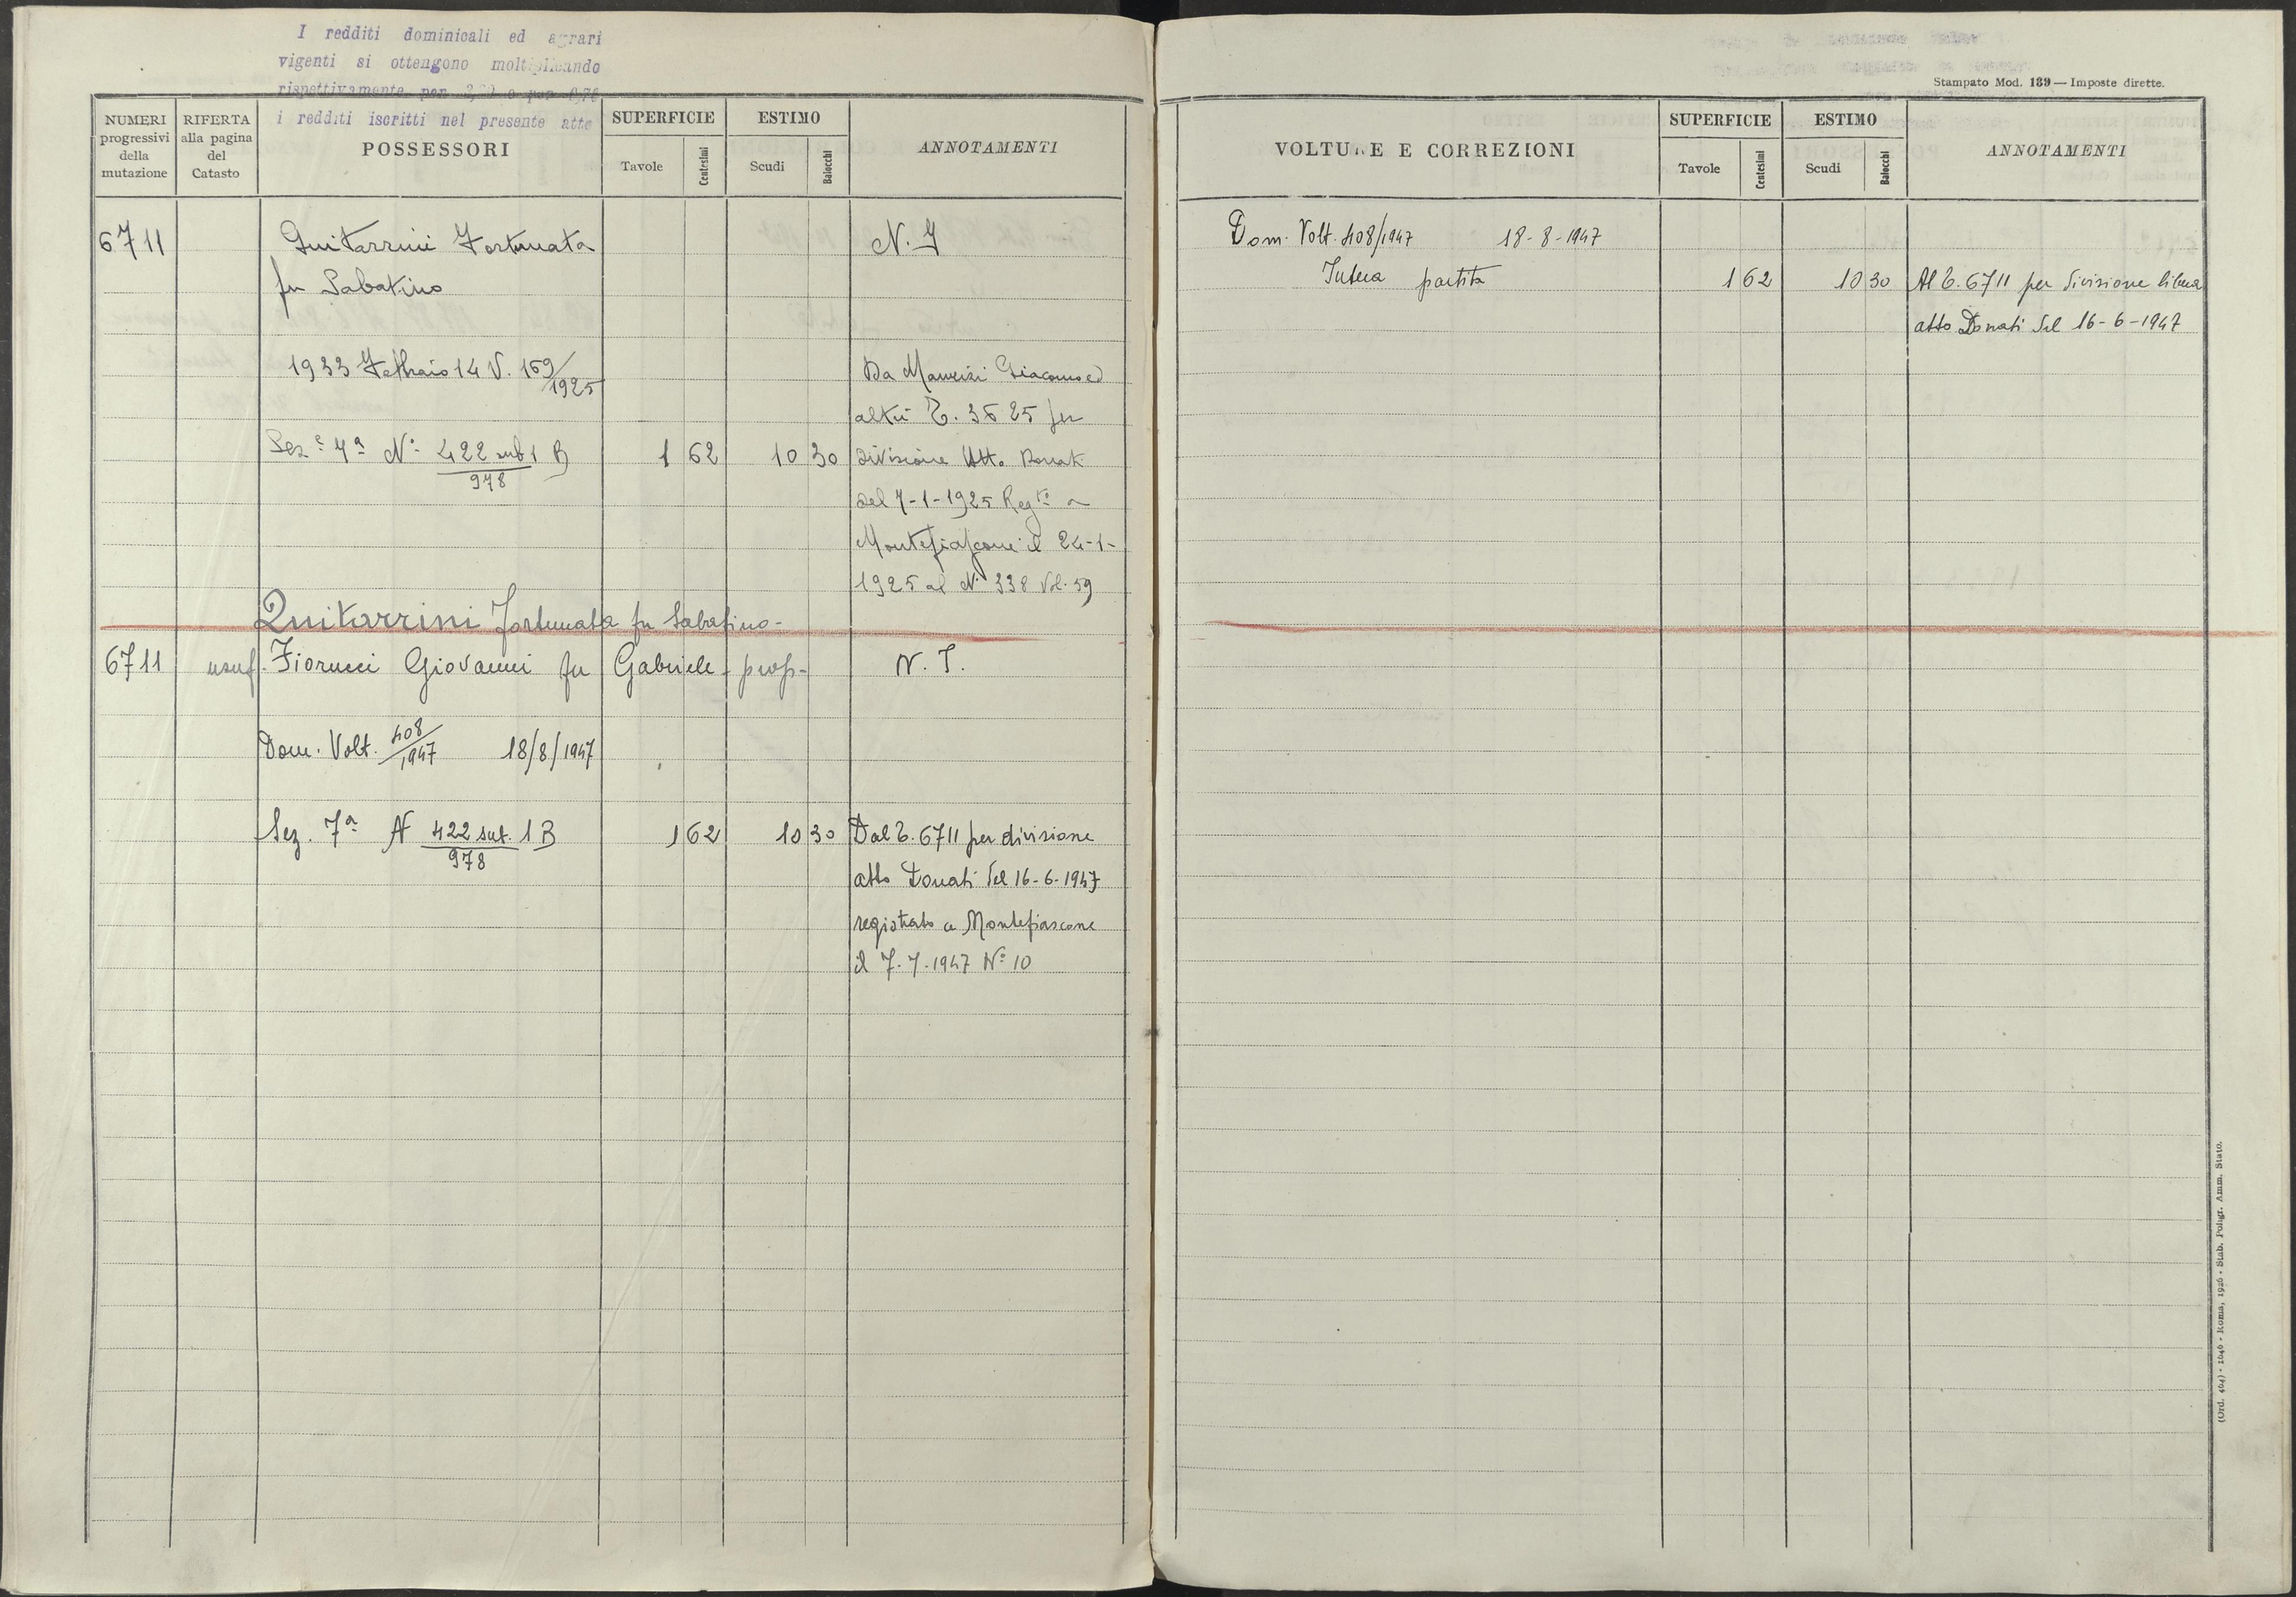 I redditi dominicali ed agrari
vigenti si ottengono moltiplicando
rispettivamente per e per
i redditi iscritti nel presente atto
NUMERI
progressivi
della
mutazione
RIFERTA
alla pagina
del
Catasto
POSSESSORI
SUPERFICIE
Tavole
Centesimi
ESTIMO
Scudi
Baiocchi
ANNOTAMENTI
6711
Quitarrini Fortunata
fu Sabatino
N. 7
1933 Febbraio 14 V. 169/1925
Sez.e 7a No 422 sub 1 B
978
1 62
10 30
Da Giacomo ed
altri T. 3525 per
divisione Atto Donati
del 7-1-1925 Regto a
Montefiascone il 24-1-
1925 al No 338 Vol. 59
Quitarrini Fortunata fu Sabatino -
6711
usuf. Fiorucci Giovanni fu Gabriele - prop-
N. 7.
Dom. Volt. 408/1947 18/8/1947
Sez. 7a N 422 sub. 1 B
978
1 62
10 30
Dal T. 6711 per divisione
atto Donati del 16-6-1947
registrato a Montefiascone
il 7-7-1947 No 10
Stampato Mod. 139 — Imposte dirette.
VOLTURE E CORREZIONI
SUPERFICIE
Tavole
Centesimi
ESTIMO
Scudi
Baiocchi
ANNOTAMENTI
Dom. Volt. 408/1947 18-8-1947
Intera partita
1 62
10 30
Al T. 6711 per divisione
atto Donati del 16-6-1947
(Ord. 464) - 1046 - Roma, 1926 - Stab. Poligr. Amm. Stato.